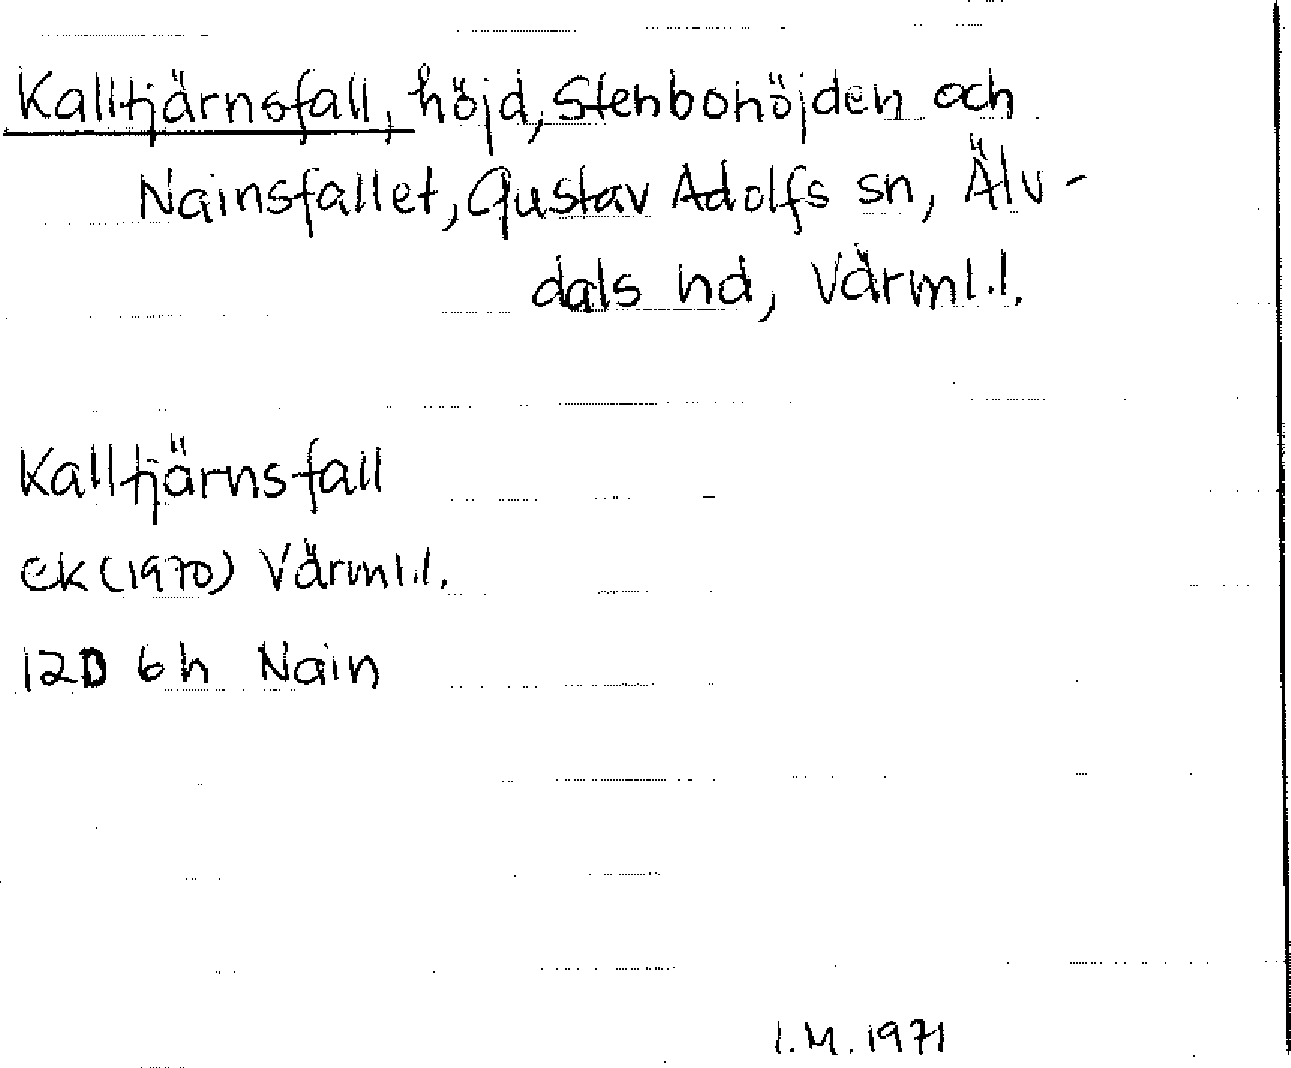 Kalltjärnsfall, höjd, Stenbohöjden och
Nainsfallet, Gustav Adolfs sn, Älv-
dals hd, Värml.l.
Kalltjärnsfall
ek (1970) Värml.l.
12D 6h Nain
I.M. 1971